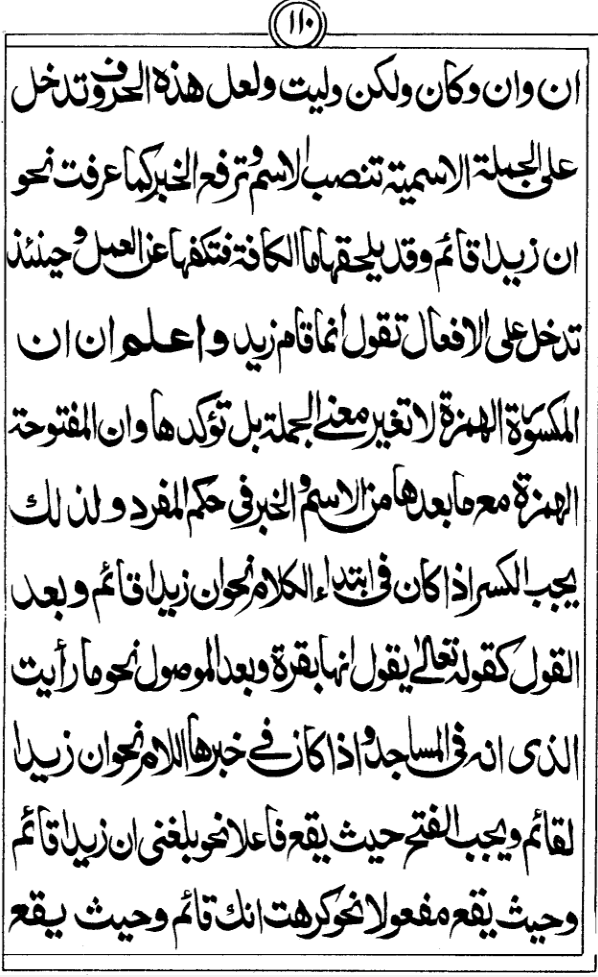 ١١٠
ان وان وكان ولكن وليت ولعل هذه الحروف تدخل
على الجملة الاسمية تنصب الاسم وترفع الخبر كما عرفت نحو
ان زيدا قائم وقد يلحقها ما الكافة فتكفها عن العمل وحينئذ
تدخل على الافعال تقول انما قام زيد واعلم ان ان
المكسورة الهمزة لا تغير معنى الجملة بل تؤكدها وان المفتوحة
الهمزة مع ما بعدها من الاسم والخبر فى حكم المفرد ولذلك
يجب الكسر اذا كان فى ابتداء الكلام نحو ان زيدا قائم وبعد
القول كقوله تعالى يقول انها بقرة وبعد الموصول نحو ما رأيت
الذى انه فى المساجد واذا كان فى خبرها اللام نحو ان زيدا
لقائم ويجب الفتح حيث يقع فاعلا نحو بلغنى ان زيدا قائم
وحيث يقع مفعولا نحو كرهت انك قائم وحيث يقع